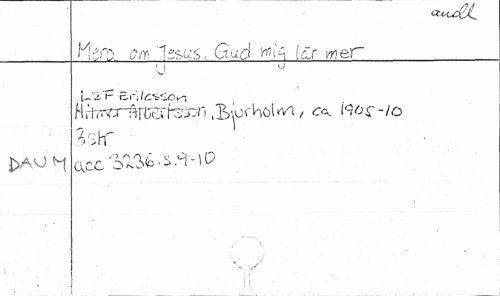 andl
Mera om Jesus. Gud mig lär mer
Leif Eriksson
Hilmer Albertsson, Bjurholm, ca 1905-10
3 str
DAUM acc 3236.s.9-10